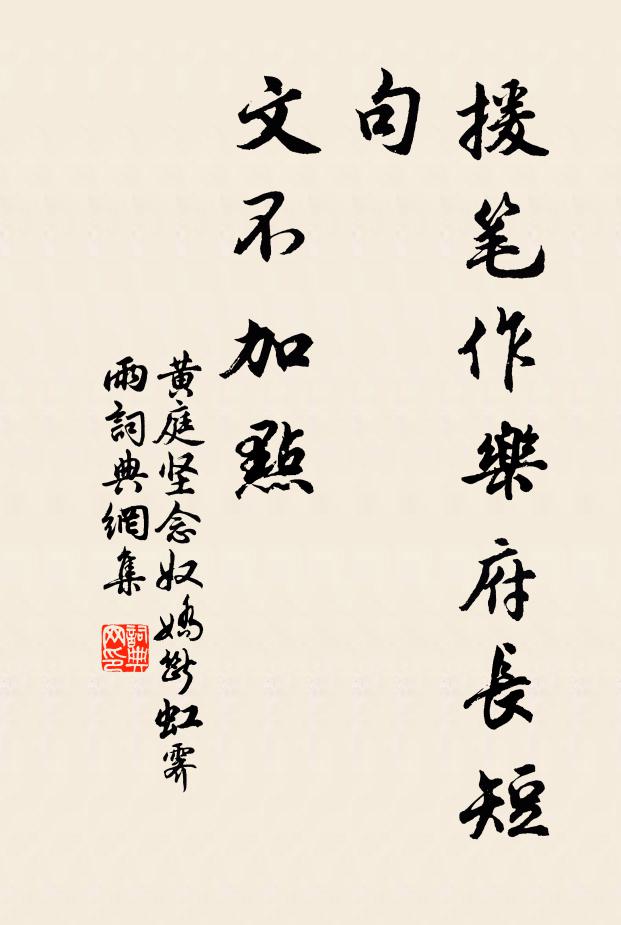 援笔作樂府長短
句
文不加點
黄庭坚念奴嬌斷虹霽
雨詞典網集
詞典
网印